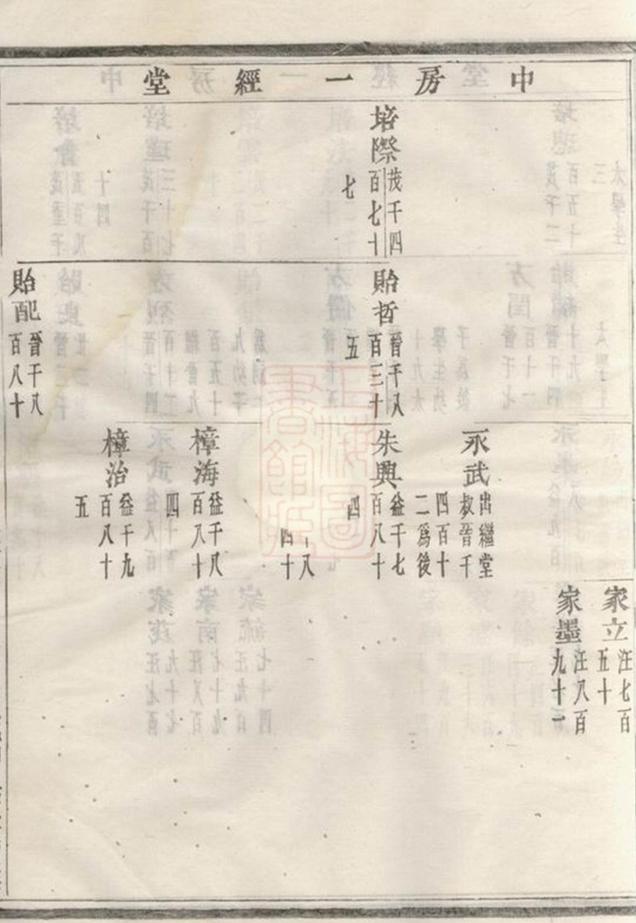 中房一經堂
培際
茂千四
百七十
七
貽哲
晉千八
百三十
五
貽配
晉千八
百八十
永武
出繼堂
叔晉千
四百十
二爲後
朱興
益千七
百八十
四
樟海
益千八
百八十
四
樟治
益千九
百八十
五
家立
汪七百
五十
家墨
汪八百
九十一